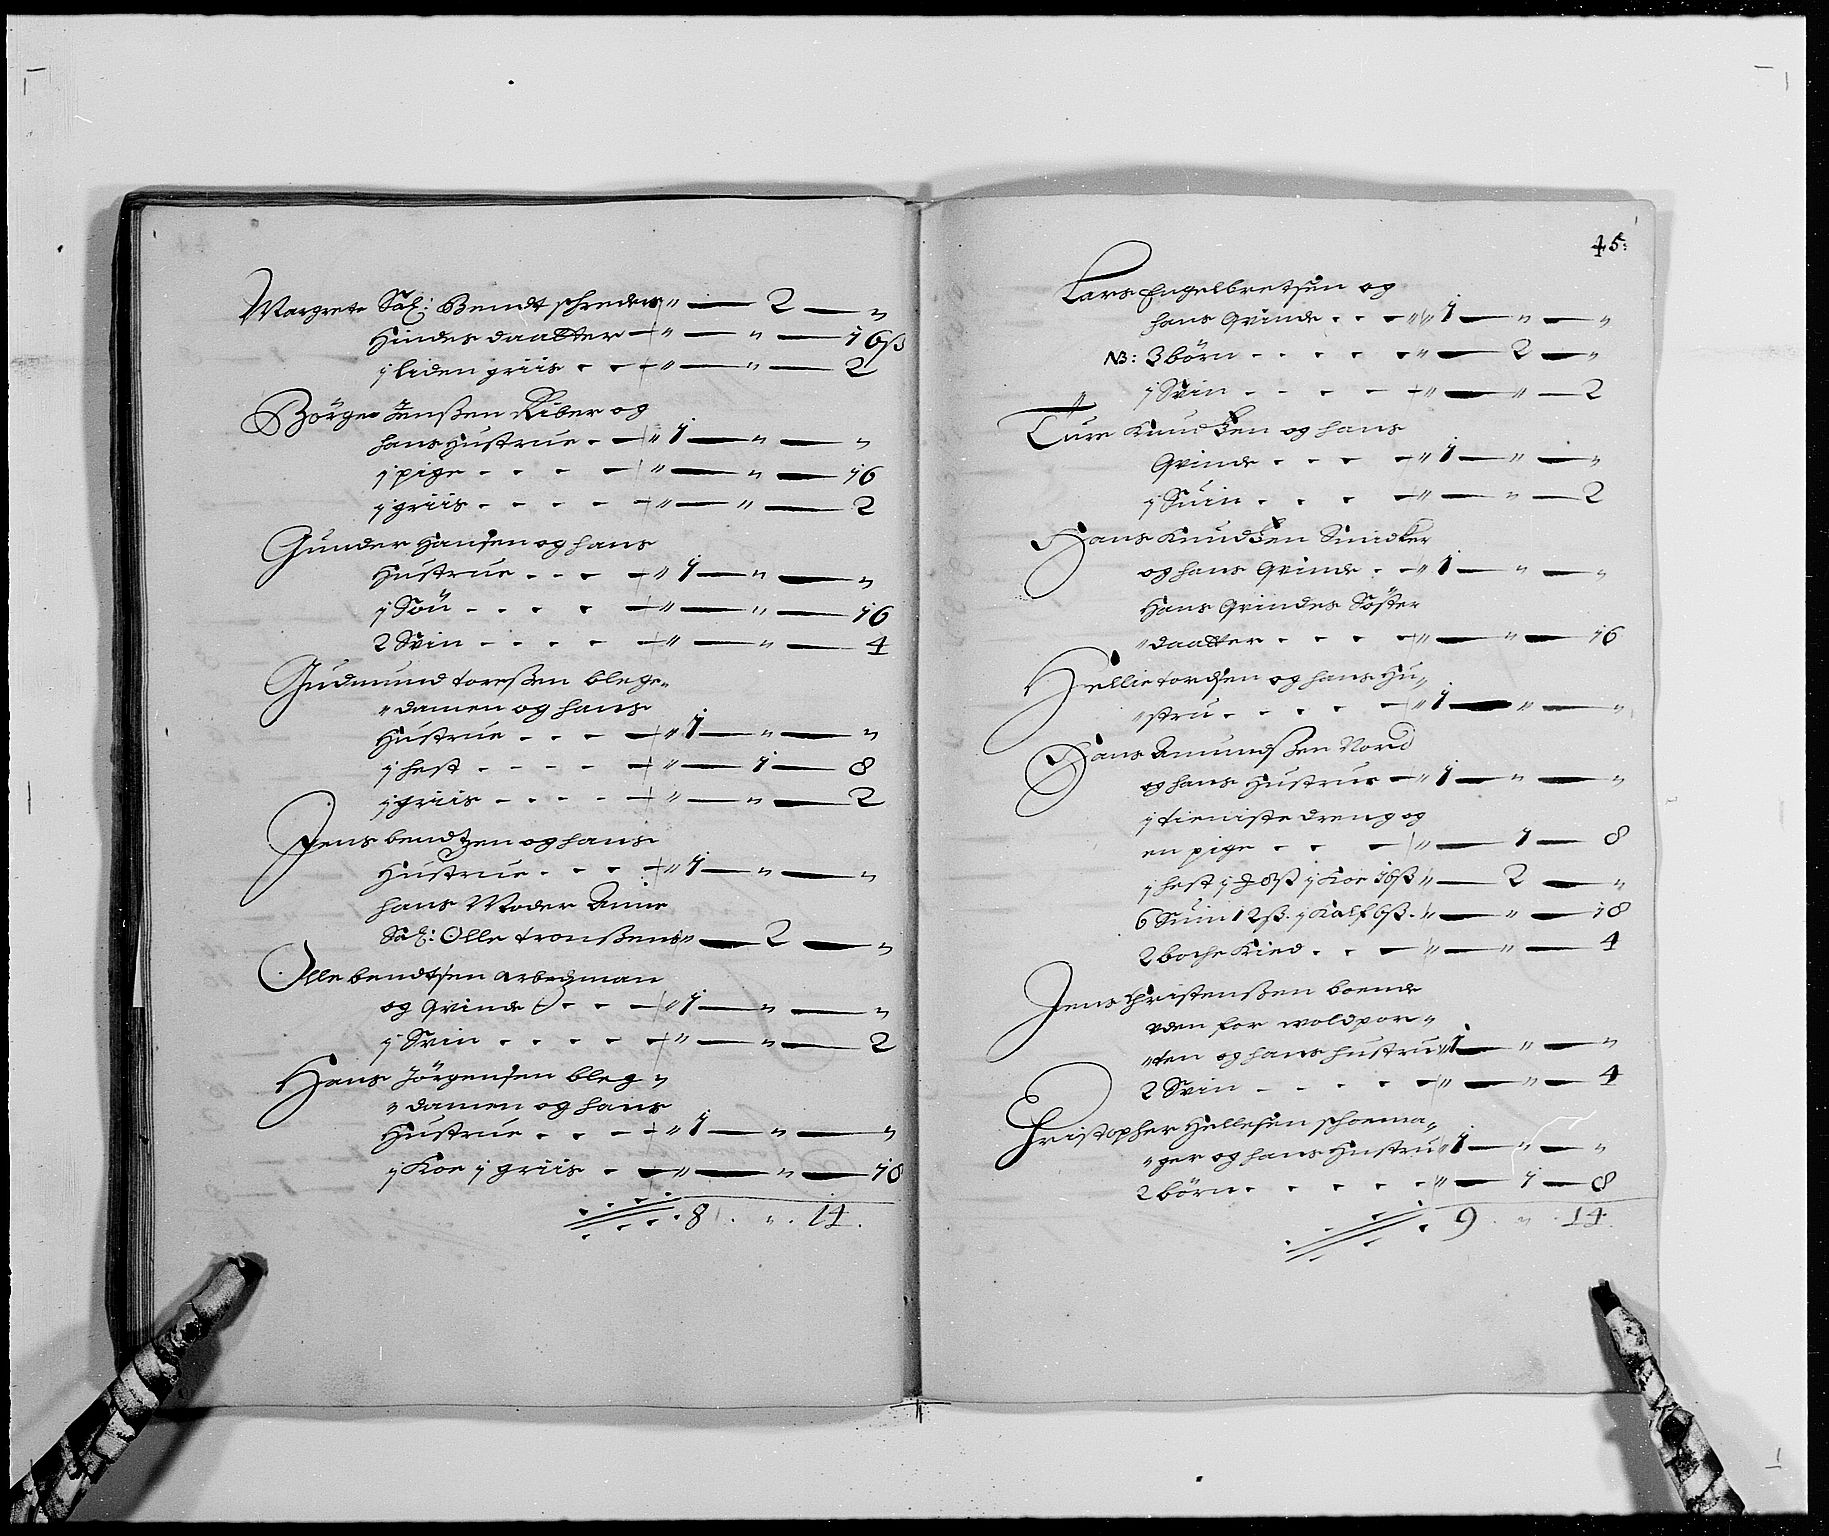 Margrete Sal: Bendt schreders " — 2 — "
Hindes daatter — " — " — 16 ß
j liden griis - - " — " — 2
Børge Jenßen Riber og
hans Hustrue - — " 1 — " — "
j pige - - - - " — " — 16
j griis - - - - " — " — 2
Gunder Hansen og hans
Hustrue - - - " 1 — " — "
j Søn - - - - " — " — 16
2 Svin - - - - " — " — 4
Gudmund toreßen blege"
"damen og hans
Hustrue - - - " 1 — " — "
j hest - - - - " — 1 — 8
j griis - - - - " — " — 2
Jens bendtzen og hans
Hustrue - - - " 1 — " — "
hans Moder Anne
Sal: Olle tronßens " — 2 — "
Olle bendtsen arbedzman
og Qvinde - - - " 1 — " — "
j Svin - - - - - " — " — 2
Hans Jørgensen bleg"
"damen og hans
Hustrue - - - " 1 — " — "
j Koe j griis - - " — " — 18
8 . " . 14.
45:
Lars Engelbretsen og
hans Qvinde - - - " 1 — " — "
NB: 3 børn - - - - - " — 2 — "
j Svin - - - - - " — " — 2
Ture Knudßen og hans
Qvinde - - - - " 1 — " — "
j Suin - - - - " — " — 2
Hans Knudßen Snidker
og hans Qvinde - - " 1 — " — "
Hans Qvindes Søster
"daatter - - - - " — " — 16
Hellie tordsen og hans Hu"
"stru - - - - - " 1 — " — "
Hans Amundßen Nord
og hans Hustrue — " 1 — " — "
j tieniste dreng og
en pige - - - " — 1 — 8
j hest j 8 ß j Koe 16 ß " — 2 — "
6 Suin 12 ß. j Kalf 6 ß. " — " — 18
2 boche Kied - - - " — " — 4
Jens Christenßen boende
uden for woldpor"
"ten og hans hustru " 1 — " — "
2 Svin - - - - - " — " — 4
Christopher Hellesen schoema"
"ger og hans Hustru " 1 — " — "
2 børn - - - - - " — 1 — 8
9 . " . 14.